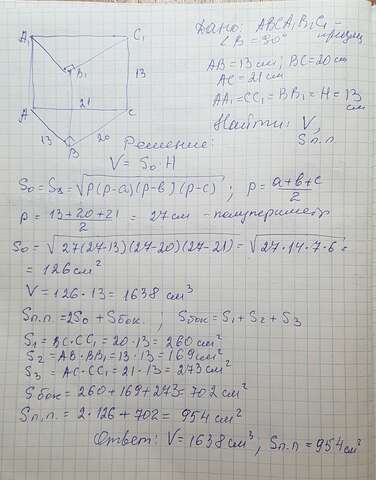 A₁
C₁
B₁
13
21
A
C
13
20
B
Дано: ABCA₁B₁C₁ –
∠B = 90° призма
AB = 13см; BC = 20см
AC = 21см
AA₁ = CC₁ = BB₁ = H = 13
см
Найти: V,
Sп.п
Решение:
V = S₀·H
S₀ = S▵ = √(p(p-a)(p-b)(p-c)) ; p = (a+b+c)/2
p = (13+20+21)/2 = 27см – полупериметр
S₀ = √(27(27-13)(27-20)(27-21)) = √(27·14·7·6) =
= 126см²
V = 126·13 = 1638 см³
Sп.п. = 2S₀ + Sбок. ; Sбок = S₁ + S₂ + S₃
S₁ = BC·CC₁ = 20·13 = 260см²
S₂ = AB·BB₁ = 13·13 = 169см²
S₃ = AC·CC₁ = 21·13 = 273см²
Sбок = 260+169+273 = 702 см²
Sп.п. = 2·126 + 702 = 954 см²
Ответ: V = 1638см³, Sп.п = 954см²